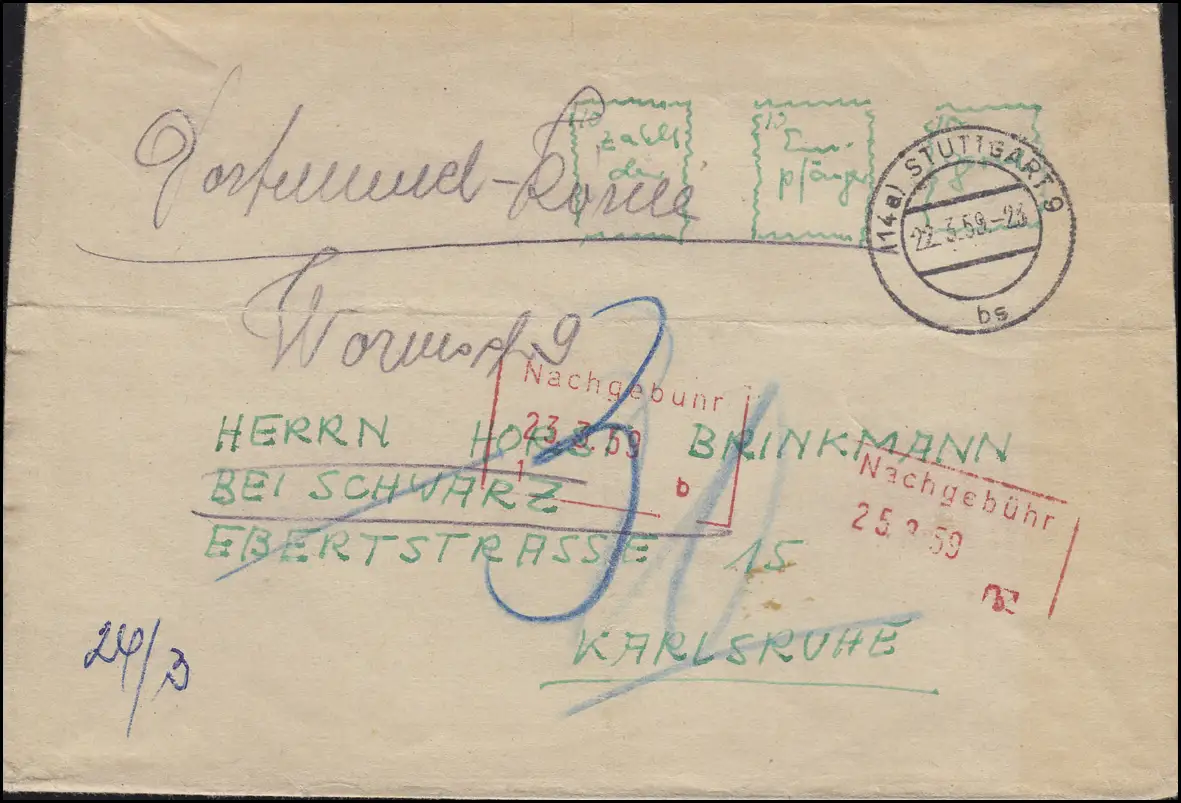 10 zahlt der
10 Em-
pfänger
(14a) STUTTGART 9
22.3.59.-23
bs
Dortmund-
9
Nachgebühr
23.3.59
1 b
HERRN HORST BRINKMANN
BEI SCHWARZ
EBERTSTRASSE 15
KARLSRUHE
Nachgebühr
25. 59
24/3